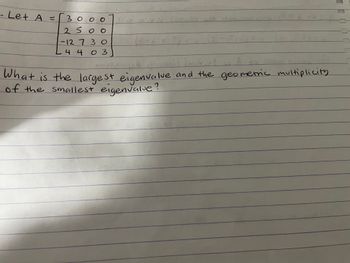 - Let A = [3 0 0 0
2 5 0 0
-12 7 3 0
4 4 0 3]
What is the largest eigenvalue and the geometric multiplicity
of the smallest eigenvalue?